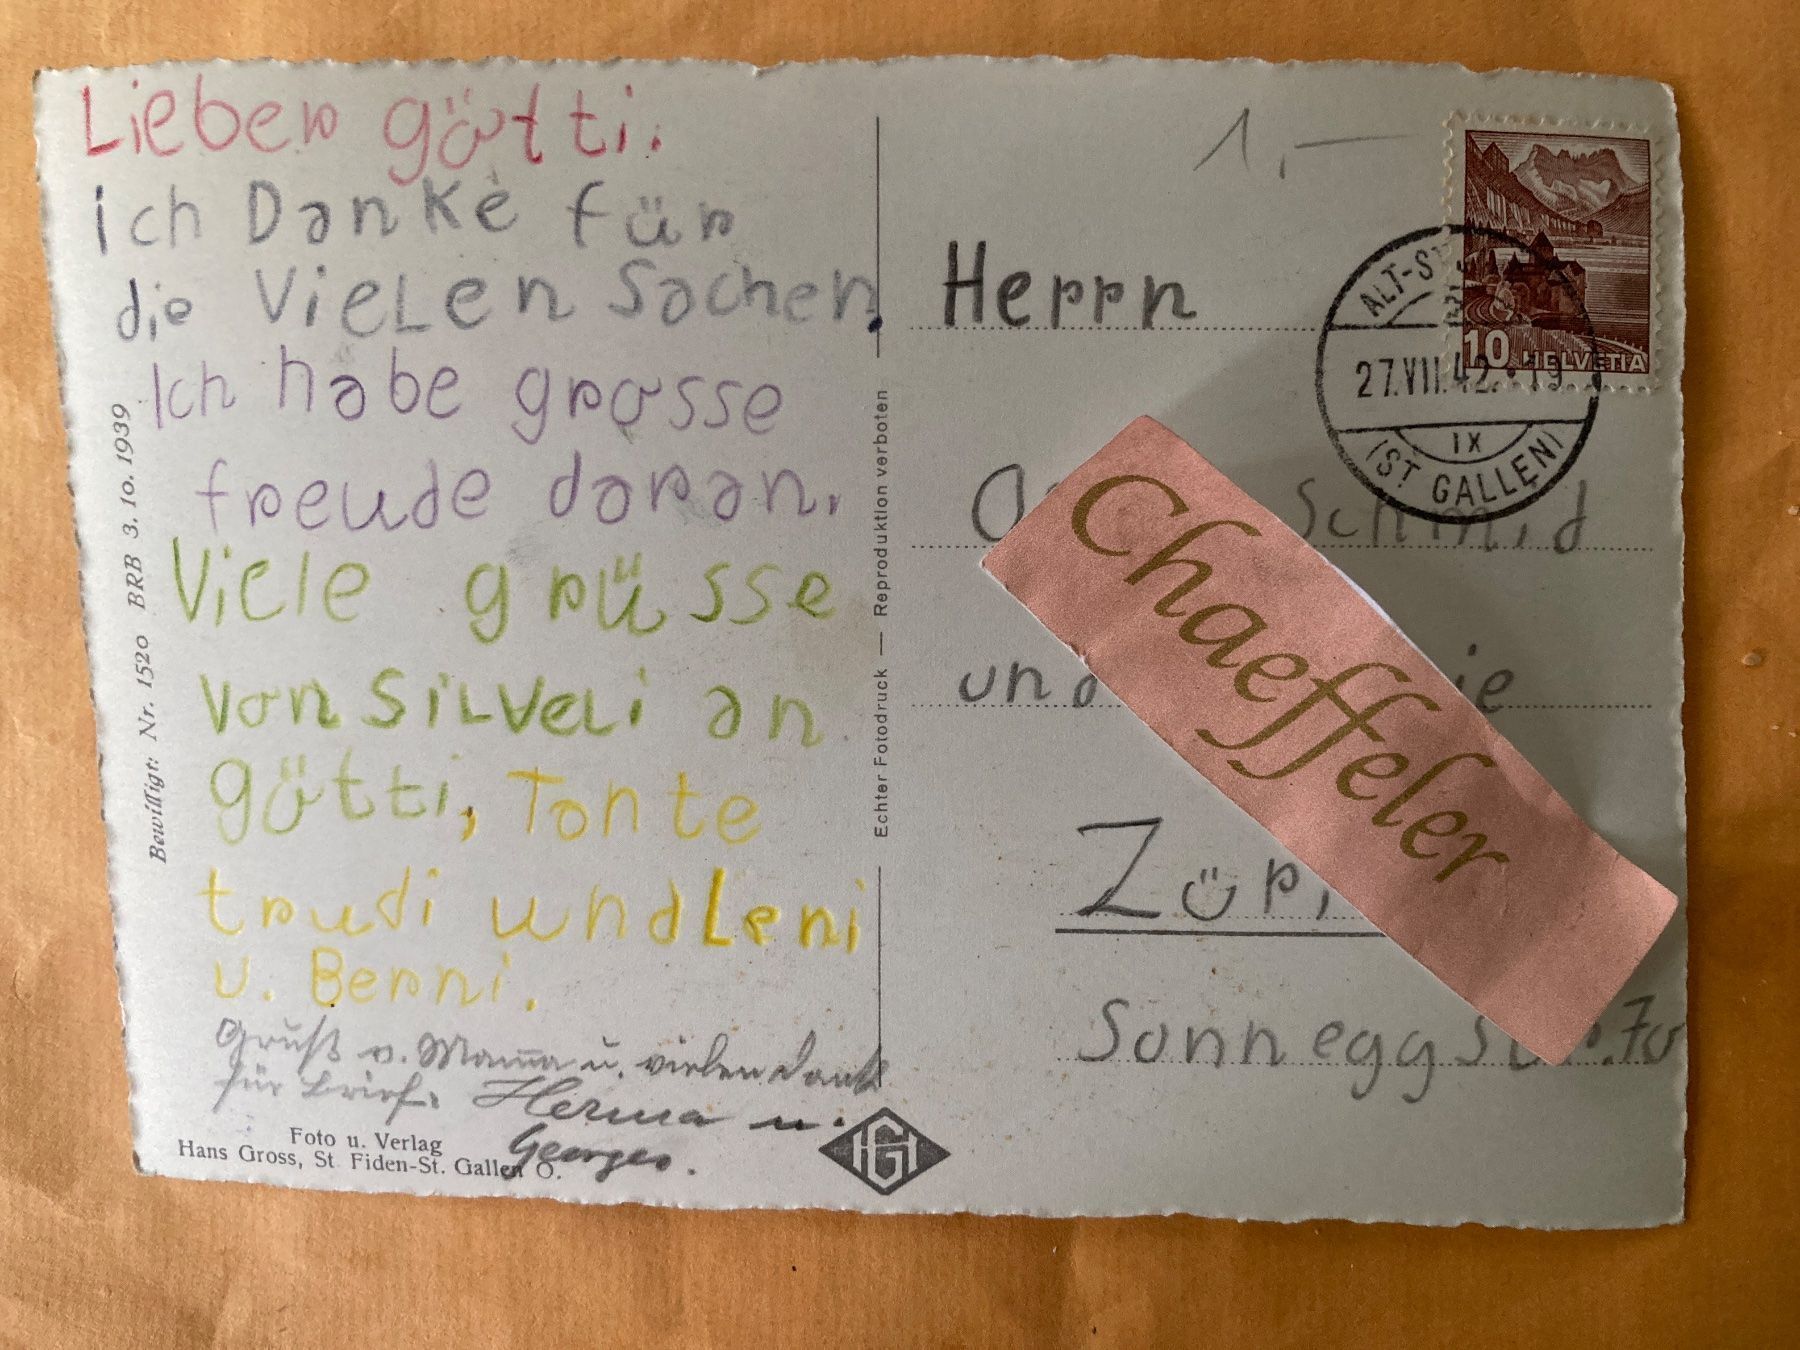 Lieber götti.
ich Danke für
die Vielen Sachen.
Ich habe grosse
freude daran.
Viele grüsse
von Silveli an
götti, Tante
trudi und Leni
u. Benni.
Gruß v. Mama u. vielen Dank
für Brief. Herma u.
Georges.
Foto u. Verlag
Hans Gross, St. Fiden-St. Gallen O.
Bewilligt: Nr. 1520 BRB 3. 10. 1939
Echter Fotodruck — Reproduktion verboten
HGI
1,—
10 HELVETIA
ALT-ST
27.VII.42. 19
IX
(ST GALLEN)
Herrn
Schmid
und
Züri
Sonneggstr. 70
Chaeffeler